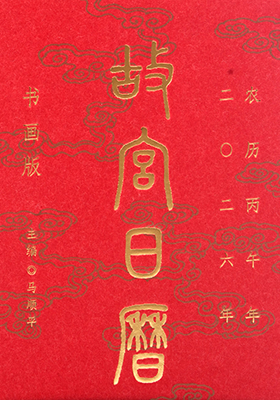 农历丙午年
二〇二六年
故宫日历
书画版
主编◎马顺平